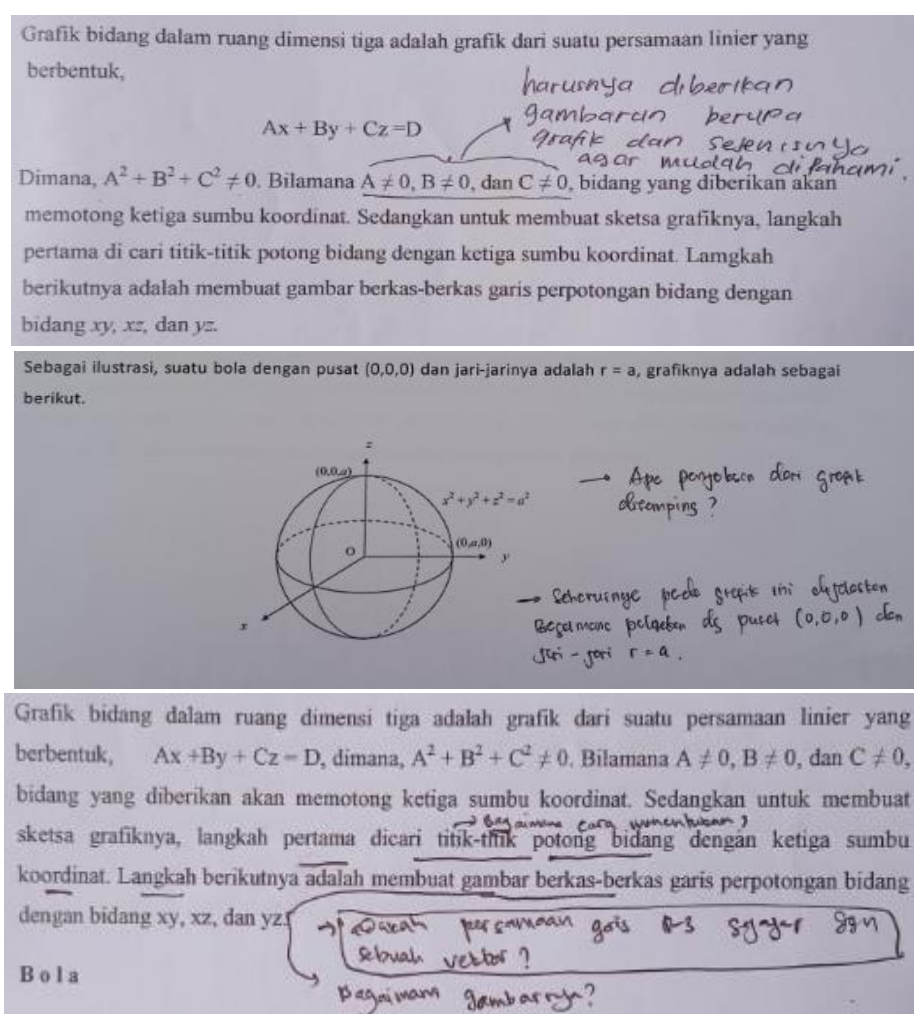 Grafik bidang dalam ruang dimensi tiga adalah grafik dari suatu persamaan linier yang
berbentuk,
harusnya diberikan
gambaran berupa
grafik dan selenisnya
agar mudah difahami.
Ax + By + Cz =D
Dimana, A² + B² + C² ≠ 0. Bilamana A ≠ 0, B ≠ 0, dan C ≠ 0, bidang yang diberikan akan
memotong ketiga sumbu koordinat. Sedangkan untuk membuat sketsa grafiknya, langkah
pertama di cari titik-titik potong bidang dengan ketiga sumbu koordinat. Lamgkah
berikutnya adalah membuat gambar berkas-berkas garis perpotongan bidang dengan
bidang xy, xz, dan yz.
Sebagai ilustrasi, suatu bola dengan pusat (0,0,0) dan jari-jarinya adalah r = a, grafiknya adalah sebagai
berikut.
z
(0,0,a)
x² + y² + z² = a²
(0,a,0)
O
y
x
→ Apa dari grafik
disamping ?
→ Seharusnya pada grafik ini dijelaskan
Bagaimana dg pusat (0,0,0) dan
jari - jari r = a .
Grafik bidang dalam ruang dimensi tiga adalah grafik dari suatu persamaan linier yang
berbentuk, Ax +By + Cz = D, dimana, A² + B² + C² ≠ 0. Bilamana A ≠ 0, B ≠ 0, dan C ≠ 0,
bidang yang diberikan akan memotong ketiga sumbu koordinat. Sedangkan untuk membuat
→ Bagaimana cara menentukan ?
sketsa grafiknya, langkah pertama dicari titik-titik potong bidang dengan ketiga sumbu
koordinat. Langkah berikutnya adalah membuat gambar berkas-berkas garis perpotongan bidang
dengan bidang xy, xz, dan yz.
→ persamaan garis R-3 sejajar dgn
sebuah vektor ?
Bola
Bagaimana gambarnya?